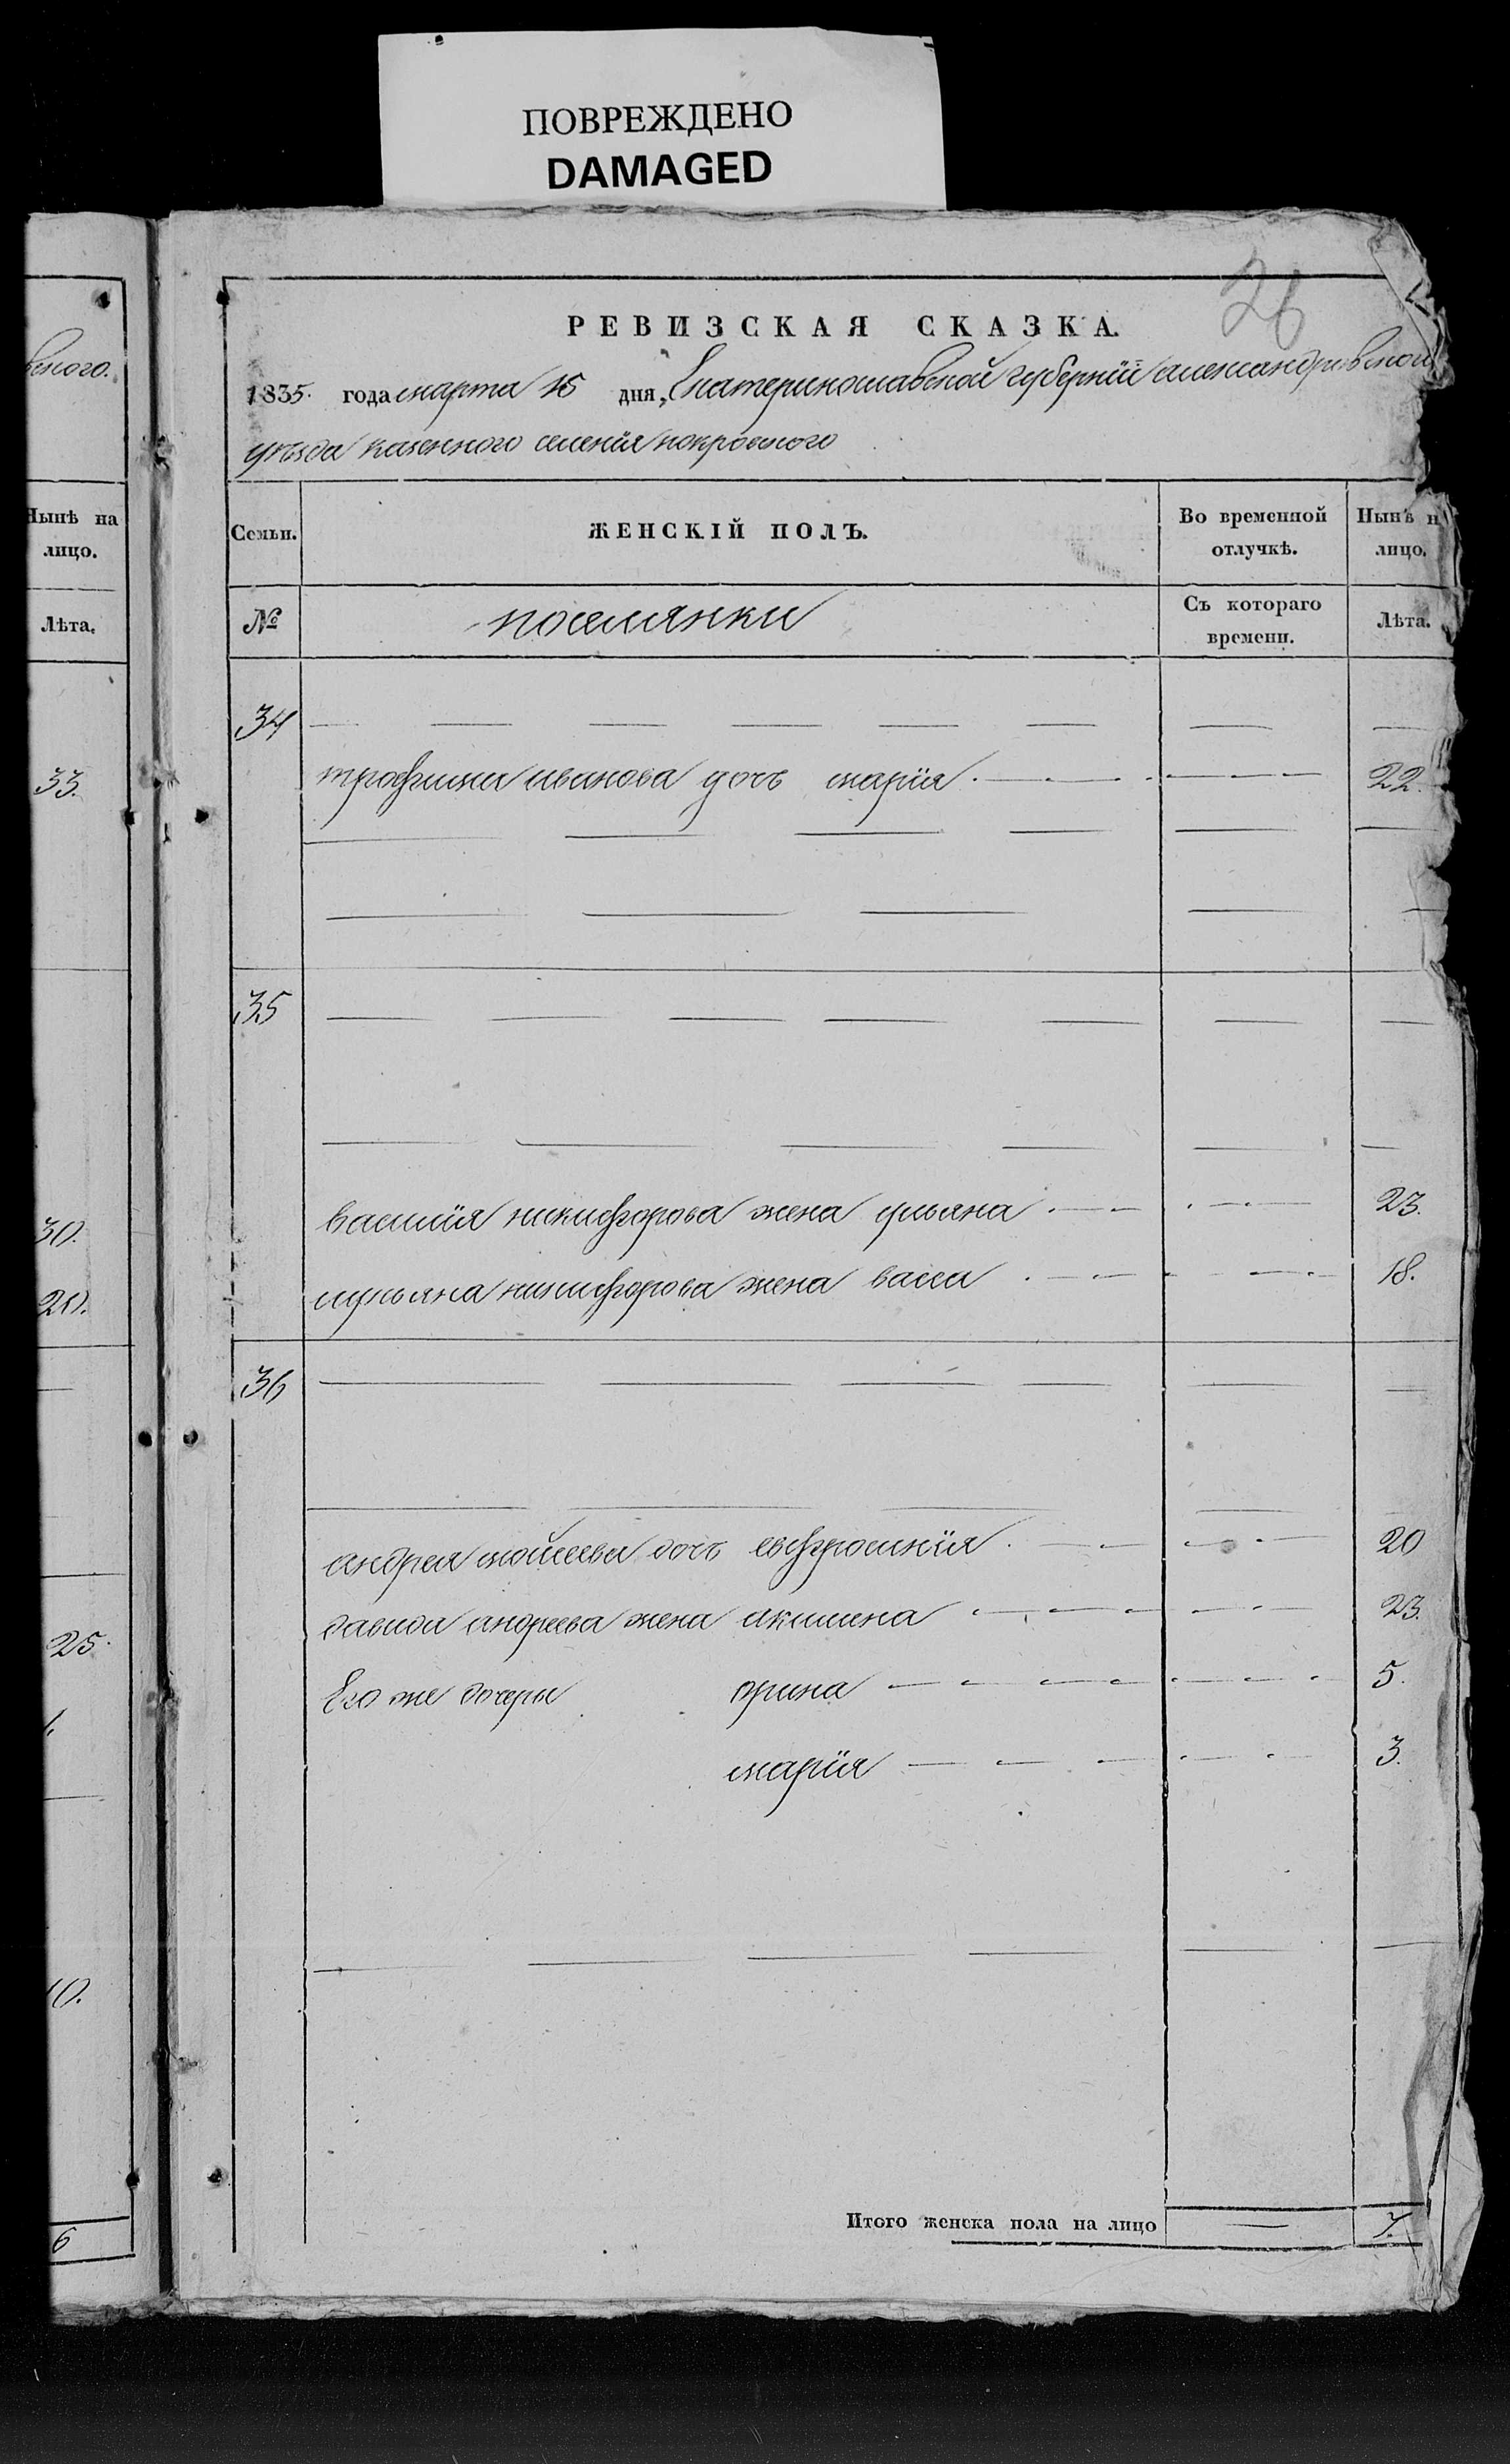 ПОВРЕЖДЕНО
DAMAGED
26
РЕВИЗСКАЯ СКАЗКА.
1835. года марта 15 дня, Екатеринославской губернїи александровской
уѣзда казенного селенїя покровского
вского.
Нынѣ на лицо.
Лѣта.
33.
30.
20.
25.
1.
10.
6
Семьи.
ЖЕНСКІЙ ПОЛЪ.
Во временной отлучкѣ.
Нынѣ н
лицо.
№
поселянки
Съ котораго времени.
Лѣта.
34
трофима иванова дочь марїя 22.
35
василїя никифорова жена ульяна 23.
лукьяна никифорова жена васса 18.
36
андрея мойсеева дочь евфросинїя 20
давида андреева жена акилина 23.
Его же дочеры орина 5.
марїя 3.
Итого женска пола на лицо 7.